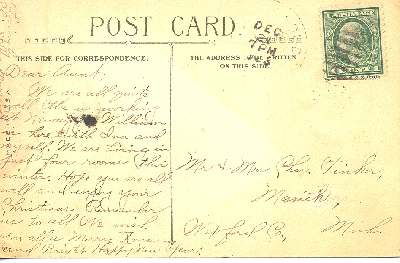 POST CARD.
THIS SIDE FOR CORRESPONDENCE.
THE ADDRESS WRITTEN
ON THIS SIDE
DEC
7 PM
Dear Aunt,
We are all quite
well. is working
at William
is here with Ina and
myself. We are living in
just four rooms this
winter. Hope you are all
well and enjoy your
Christmas. Remember
me to all. We wish
you all a Merry Xmas
and Bright Happy New Year.
Mr & Mrs Chas. Tinker,
Mesick,
Wexford Co, Mich